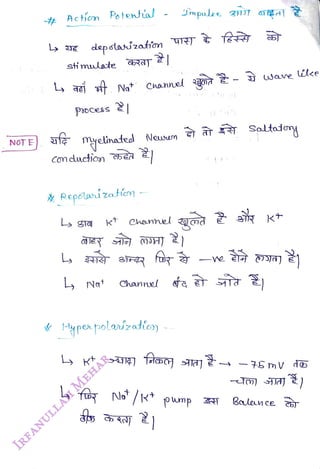 # Action Potential - Impulse आगे बढ़ता है
↳ यह depolarization पास के हिस्से को
stimulate करता है।
↳ वहाँ भी Na⁺ Channel खुलते हैं - ये wave like
process है।
NOTE यदि myelinated Neuron हो तो इसे Saltatory
conduction कहते हैं।
* Repolarization -
↳ अब K⁺ Channel खुलते हैं और K⁺
बाहर जाने लगता है।
↳ इससे अन्दर फिर से -ve होने लगता है।
↳ Na⁺ Channel बंद हो जाते हैं।
* Hyperpolarization -
↳ K⁺ ज्यादा निकल जाता है → -75 mV तक
चला जाता है।
↳ फिर Na⁺/K⁺ pump इस Balance को
ठीक करता है।
IRFANULLAH MEHAR